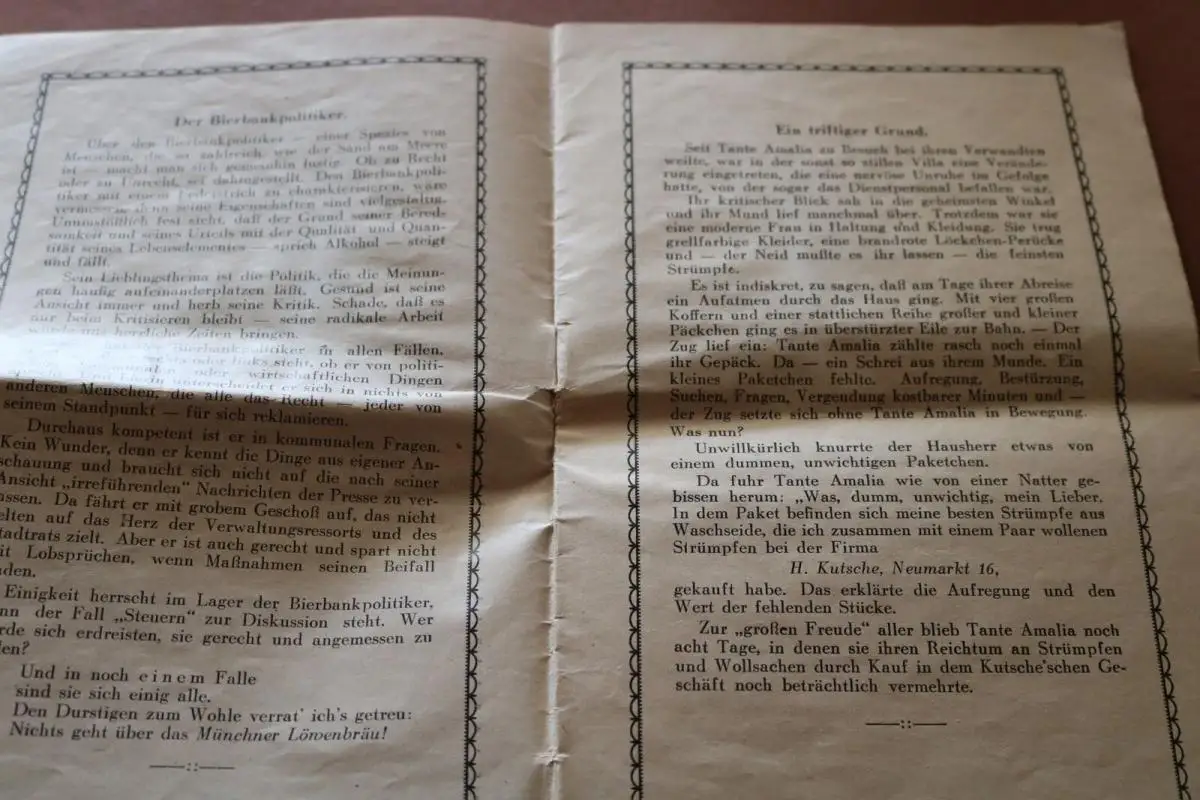 Der Bierbankpolitiker.
Über den Bierbankpolitiker — einer Spezies von
Menschen, die so zahlreich wie der Sand am Meere
ist — macht man sich gemeinhin lustig. Ob zu Recht
oder zu Unrecht, sei dahingestellt. Den Bierbankpoli-
tiker mit einem Federstrich zu charakterisieren, wäre
vermessen, denn seine Eigenschaften sind vielgestaltig.
Unumstößlich fest steht, daß der Grund seiner Bered-
samkeit und seines Urteils mit der Qualität und Quan-
tität seines Lebenselementes — sprich Alkohol — steigt
und fällt.
Sein Lieblingsthema ist die Politik, die die Meinun-
gen häufig aufeinanderplatzen läßt. Gesund ist seine
Ansicht immer und herb seine Kritik. Schade, daß es
nur beim Kritisieren bleibt — seine radikale Arbeit
würde uns herrliche Zeiten bringen.
Bierbankpolitiker in allen Fällen,
oder links steht, ob er von politi-
oder wirtschaftlichen Dingen
unterscheidet er sich in nichts von
anderen Menschen, die alle das Recht — jeder von
seinem Standpunkt — für sich reklamieren.
Durchaus kompetent ist er in kommunalen Fragen.
Kein Wunder, denn er kennt die Dinge aus eigener An-
schauung und braucht sich nicht auf die nach seiner
Ansicht „irreführenden" Nachrichten der Presse zu ver-
assen. Da fährt er mit grobem Geschoß auf, das nicht
elten auf das Herz der Verwaltungsressorts und des
tadtrats zielt. Aber er ist auch gerecht und spart nicht
it Lobsprüchen, wenn Maßnahmen seinen Beifall
den.
Einigkeit herrscht im Lager der Bierbankpolitiker,
nn der Fall „Steuern" zur Diskussion steht. Wer
rde sich erdreisten, sie gerecht und angemessen zu
en?
Und in noch einem Falle
sind sie sich einig alle.
Den Durstigen zum Wohle verrat' ich's getreu:
Nichts geht über das Münchner Löwenbräu!
Ein triftiger Grund.
Seit Tante Amalia zu Besuch bei ihren Verwandten
weilte, war in der sonst so stillen Villa eine Verände-
rung eingetreten, die eine nervöse Unruhe im Gefolge
hatte, von der sogar das Dienstpersonal befallen war.
Ihr kritischer Blick sah in die geheimsten Winkel
und ihr Mund lief manchmal über. Trotzdem war sie
eine moderne Frau in Haltung und Kleidung. Sie trug
grellfarbige Kleider, eine brandrote Löckchen-Perücke
und — der Neid mußte es ihr lassen — die feinsten
Strümpfe.
Es ist indiskret, zu sagen, daß am Tage ihrer Abreise
ein Aufatmen durch das Haus ging. Mit vier großen
Koffern und einer stattlichen Reihe großer und kleiner
Päckchen ging es in überstürzter Eile zur Bahn. — Der
Zug lief ein: Tante Amalia zählte rasch noch einmal
ihr Gepäck. Da — ein Schrei aus ihrem Munde. Ein
kleines Paketchen fehlte. Aufregung, Bestürzung,
Suchen, Fragen, Vergendung kostbarer Minuten und —
der Zug setzte sich ohne Tante Amalia in Bewegung.
Was nun?
Unwillkürlich knurrte der Hausherr etwas von
einem dummen, unwichtigen Paketchen.
Da fuhr Tante Amalia wie von einer Natter ge-
bissen herum: „Was, dumm, unwichtig, mein Lieber.
In dem Paket befinden sich meine besten Strümpfe aus
Waschseide, die ich zusammen mit einem Paar wollenen
Strümpfen bei der Firma
H. Kutsche, Neumarkt 16,
gekauft habe. Das erklärte die Aufregung und den
Wert der fehlenden Stücke.
Zur „großen Freude" aller blieb Tante Amalia noch
acht Tage, in denen sie ihren Reichtum an Strümpfen
und Wollsachen durch Kauf in dem Kutsche'schen Ge-
schäft noch beträchtlich vermehrte.